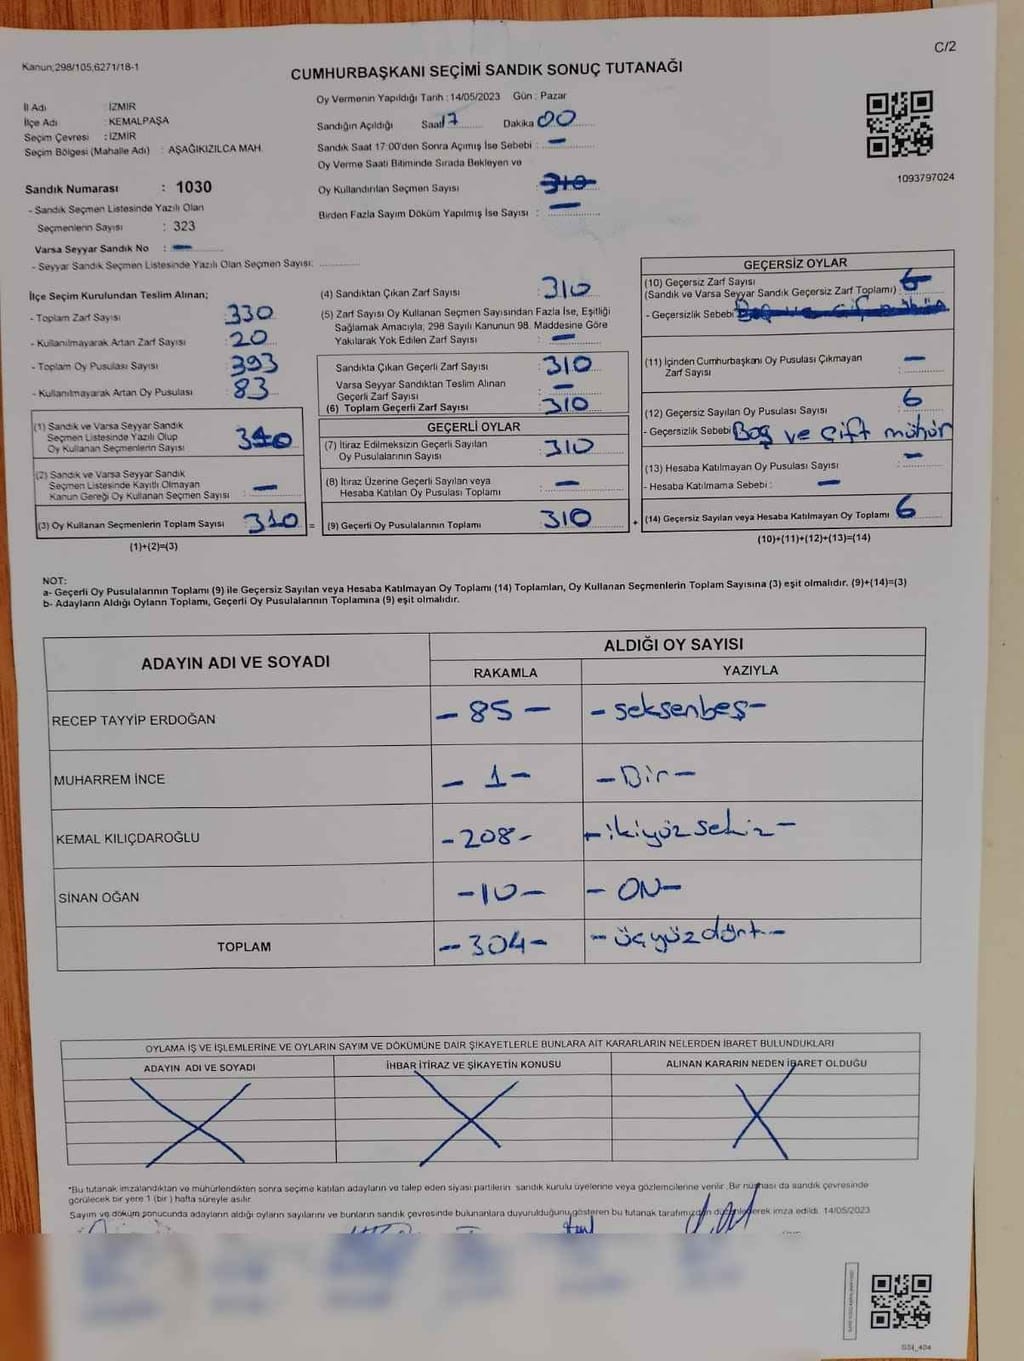 C/2
Kanun;298/105,6271/18-1
CUMHURBAŞKANI SEÇİMİ SANDIK SONUÇ TUTANAĞI
İl Adı : İZMİR
İlçe Adı : KEMALPAŞA
Seçim Çevresi : İZMİR
Seçim Bölgesi (Mahalle Adı) : AŞAĞIKIZILCA MAH.
Sandık Numarası : 1030
- Sandık Seçmen Listesinde Yazılı Olan
Seçmenlerin Sayısı : 323
Varsa Seyyar Sandık No : —
- Seyyar Sandık Seçmen Listesinde Yazılı Olan Seçmen Sayısı:
Oy Vermenin Yapıldığı Tarih : 14/05/2023 Gün : Pazar
Sandığın Açıldığı Saat 17 Dakika 00
Sandık Saat 17:00'den Sonra Açımış İse Sebebi : —
Oy Verme Saati Bitiminde Sırada Bekleyen ve
Oy Kullandırılan Seçmen Sayısı : 310
Birden Fazla Sayım Döküm Yapılmış İse Sayısı : —
1093797024
İlçe Seçim Kurulundan Teslim Alınan;
- Toplam Zarf Sayısı : 330
- Kullanılmayarak Artan Zarf Sayısı : 20
- Toplam Oy Pusulası Sayısı : 393
- Kullanılmayarak Artan Oy Pusulası : 83
(1) Sandık ve Varsa Seyyar Sandık
Seçmen Listesinde Yazılı Olup
Oy Kullanan Seçmenlerin Sayısı : 310
(2) Sandık ve Varsa Seyyar Sandık
Seçmen Listesinde Kayıtlı Olmayan
Kanun Gereği Oy Kullanan Seçmen Sayısı : —
(3) Oy Kullanan Seçmenlerin Toplam Sayısı : 310 =
(1)+(2)=(3)
(4) Sandıktan Çıkan Zarf Sayısı : 310
(5) Zarf Sayısı Oy Kullanan Seçmen Sayısından Fazla İse, Eşitliği
Sağlamak Amacıyla, 298 Sayılı Kanunun 98. Maddesine Göre
Yakılarak Yok Edilen Zarf Sayısı : —
Sandıkta Çıkan Geçerli Zarf Sayısı : 310
Varsa Seyyar Sandıktan Teslim Alınan
Geçerli Zarf Sayısı : —
(6) Toplam Geçerli Zarf Sayısı : 310
GEÇERLİ OYLAR
(7) İtiraz Edilmeksizin Geçerli Sayılan
Oy Pusulalarının Sayısı : 310
(8) İtiraz Üzerine Geçerli Sayılan veya
Hesaba Katılan Oy Pusulası Toplamı : —
(9) Geçerli Oy Pusulalarının Toplamı : 310 +
GEÇERSİZ OYLAR
(10) Geçersiz Zarf Sayısı
(Sandık ve Varsa Seyyar Sandık Geçersiz Zarf Toplamı) : 6
- Geçersizlik Sebebi
(11) İçinden Cumhurbaşkanı Oy Pusulası Çıkmayan
Zarf Sayısı : —
(12) Geçersiz Sayılan Oy Pusulası Sayısı : 6
- Geçersizlik Sebebi Boş ve çift mühür
(13) Hesaba Katılmayan Oy Pusulası Sayısı : —
- Hesaba Katılmama Sebebi : —
(14) Geçersiz Sayılan veya Hesaba Katılmayan Oy Toplamı : 6
(10)+(11)+(12)+(13)=(14)
NOT:
a- Geçerli Oy Pusulalarının Toplamı (9) ile Geçersiz Sayılan veya Hesaba Katılmayan Oy Toplamı (14) Toplamları, Oy Kullanan Seçmenlerin Toplam Sayısına (3) eşit olmalıdır. (9)+(14)=(3)
b- Adayların Aldığı Oyların Toplamı, Geçerli Oy Pusulalarının Toplamına (9) eşit olmalıdır.
ADAYIN ADI VE SOYADI
ALDIĞI OY SAYISI
RAKAMLA YAZIYLA
RECEP TAYYİP ERDOĞAN - 85 - - seksenbeş -
MUHARREM İNCE - 1 - - Bir -
KEMAL KILIÇDAROĞLU - 208 - - ikiyüz sekiz -
SİNAN OĞAN - 10 - - ON -
TOPLAM - 304 - - üçyüzdört -
OYLAMA İŞ VE İŞLEMLERİNE VE OYLARIN SAYIM VE DÖKÜMÜNE DAİR ŞİKAYETLERLE BUNLARA AİT KARARLARIN NELERDEN İBARET BULUNDUKLARI
ADAYIN ADI VE SOYADI İHBAR İTİRAZ VE ŞİKAYETİN KONUSU ALINAN KARARIN NEDEN İBARET OLDUĞU
*Bu tutanak imzalandıktan ve mühürlendikten sonra seçime katılan adayların ve talep eden siyasi partilerin sandık kurulu üyelerine veya gözlemcilerine verilir. Bir nüshası da sandık çevresinde
görülecek bir yere 1 (bir) hafta süreyle asılır.
Sayım ve döküm sonucunda adayların aldığı oyların sayılarını ve bunların sandık çevresinde bulunanlara duyurulduğunu gösteren bu tutanak tarafımızdan düzenlenerek imza edildi. 14/05/2023